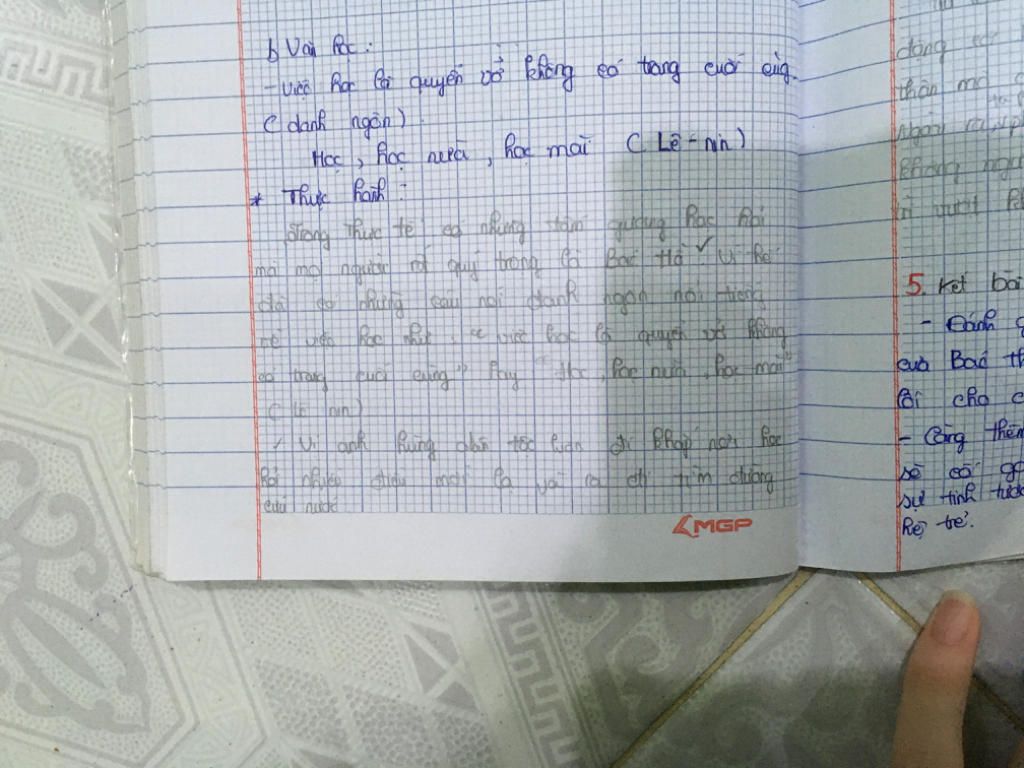 b Văn học :
- Việc học là quyển vở không có trang cuối cùng.
( danh ngôn )
Học , học nữa , học mãi ( Lê - nin )
* Thực hành :
Trong thực tế có những tấm gương học hỏi
mà mọi người rất quý trọng là Bác Hồ ✓ Vì
đã có những câu nói danh ngôn nổi tiếng
về việc học như , " việc học là quyển vở không
có trang cuối cùng" hay " Học , học nữa , học mãi"
( Lê nin )
Vị anh hùng dân tộc luôn đi khắp nơi học
hỏi nhiều điều mới lạ và ra đi tìm đường
cứu nước
MGP
động
thân
Ngoài ra,
không
vượt
5. Kết bài
- Đánh
của Bác
lời cho
- Càng thêm
sẽ cố
sự tinh
hệ trẻ.